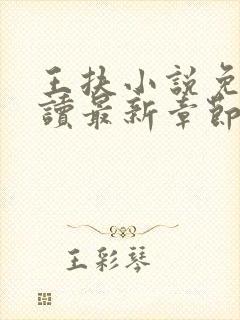 王扶小說免
讀最新章節
王彩琴